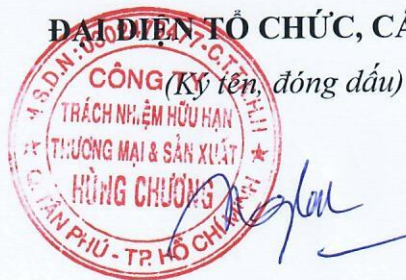 ĐẠI DIỆN TỔ CHỨC, CÁ
(Ký tên, đóng dấu)
CÔNG TY
TRÁCH NHIỆM HỮU HẠN
THƯƠNG MẠI & SẢN XUẤT
HÙNG CHƯƠNG
Q. TÂN PHÚ - TP. HỒ CHÍ MINH